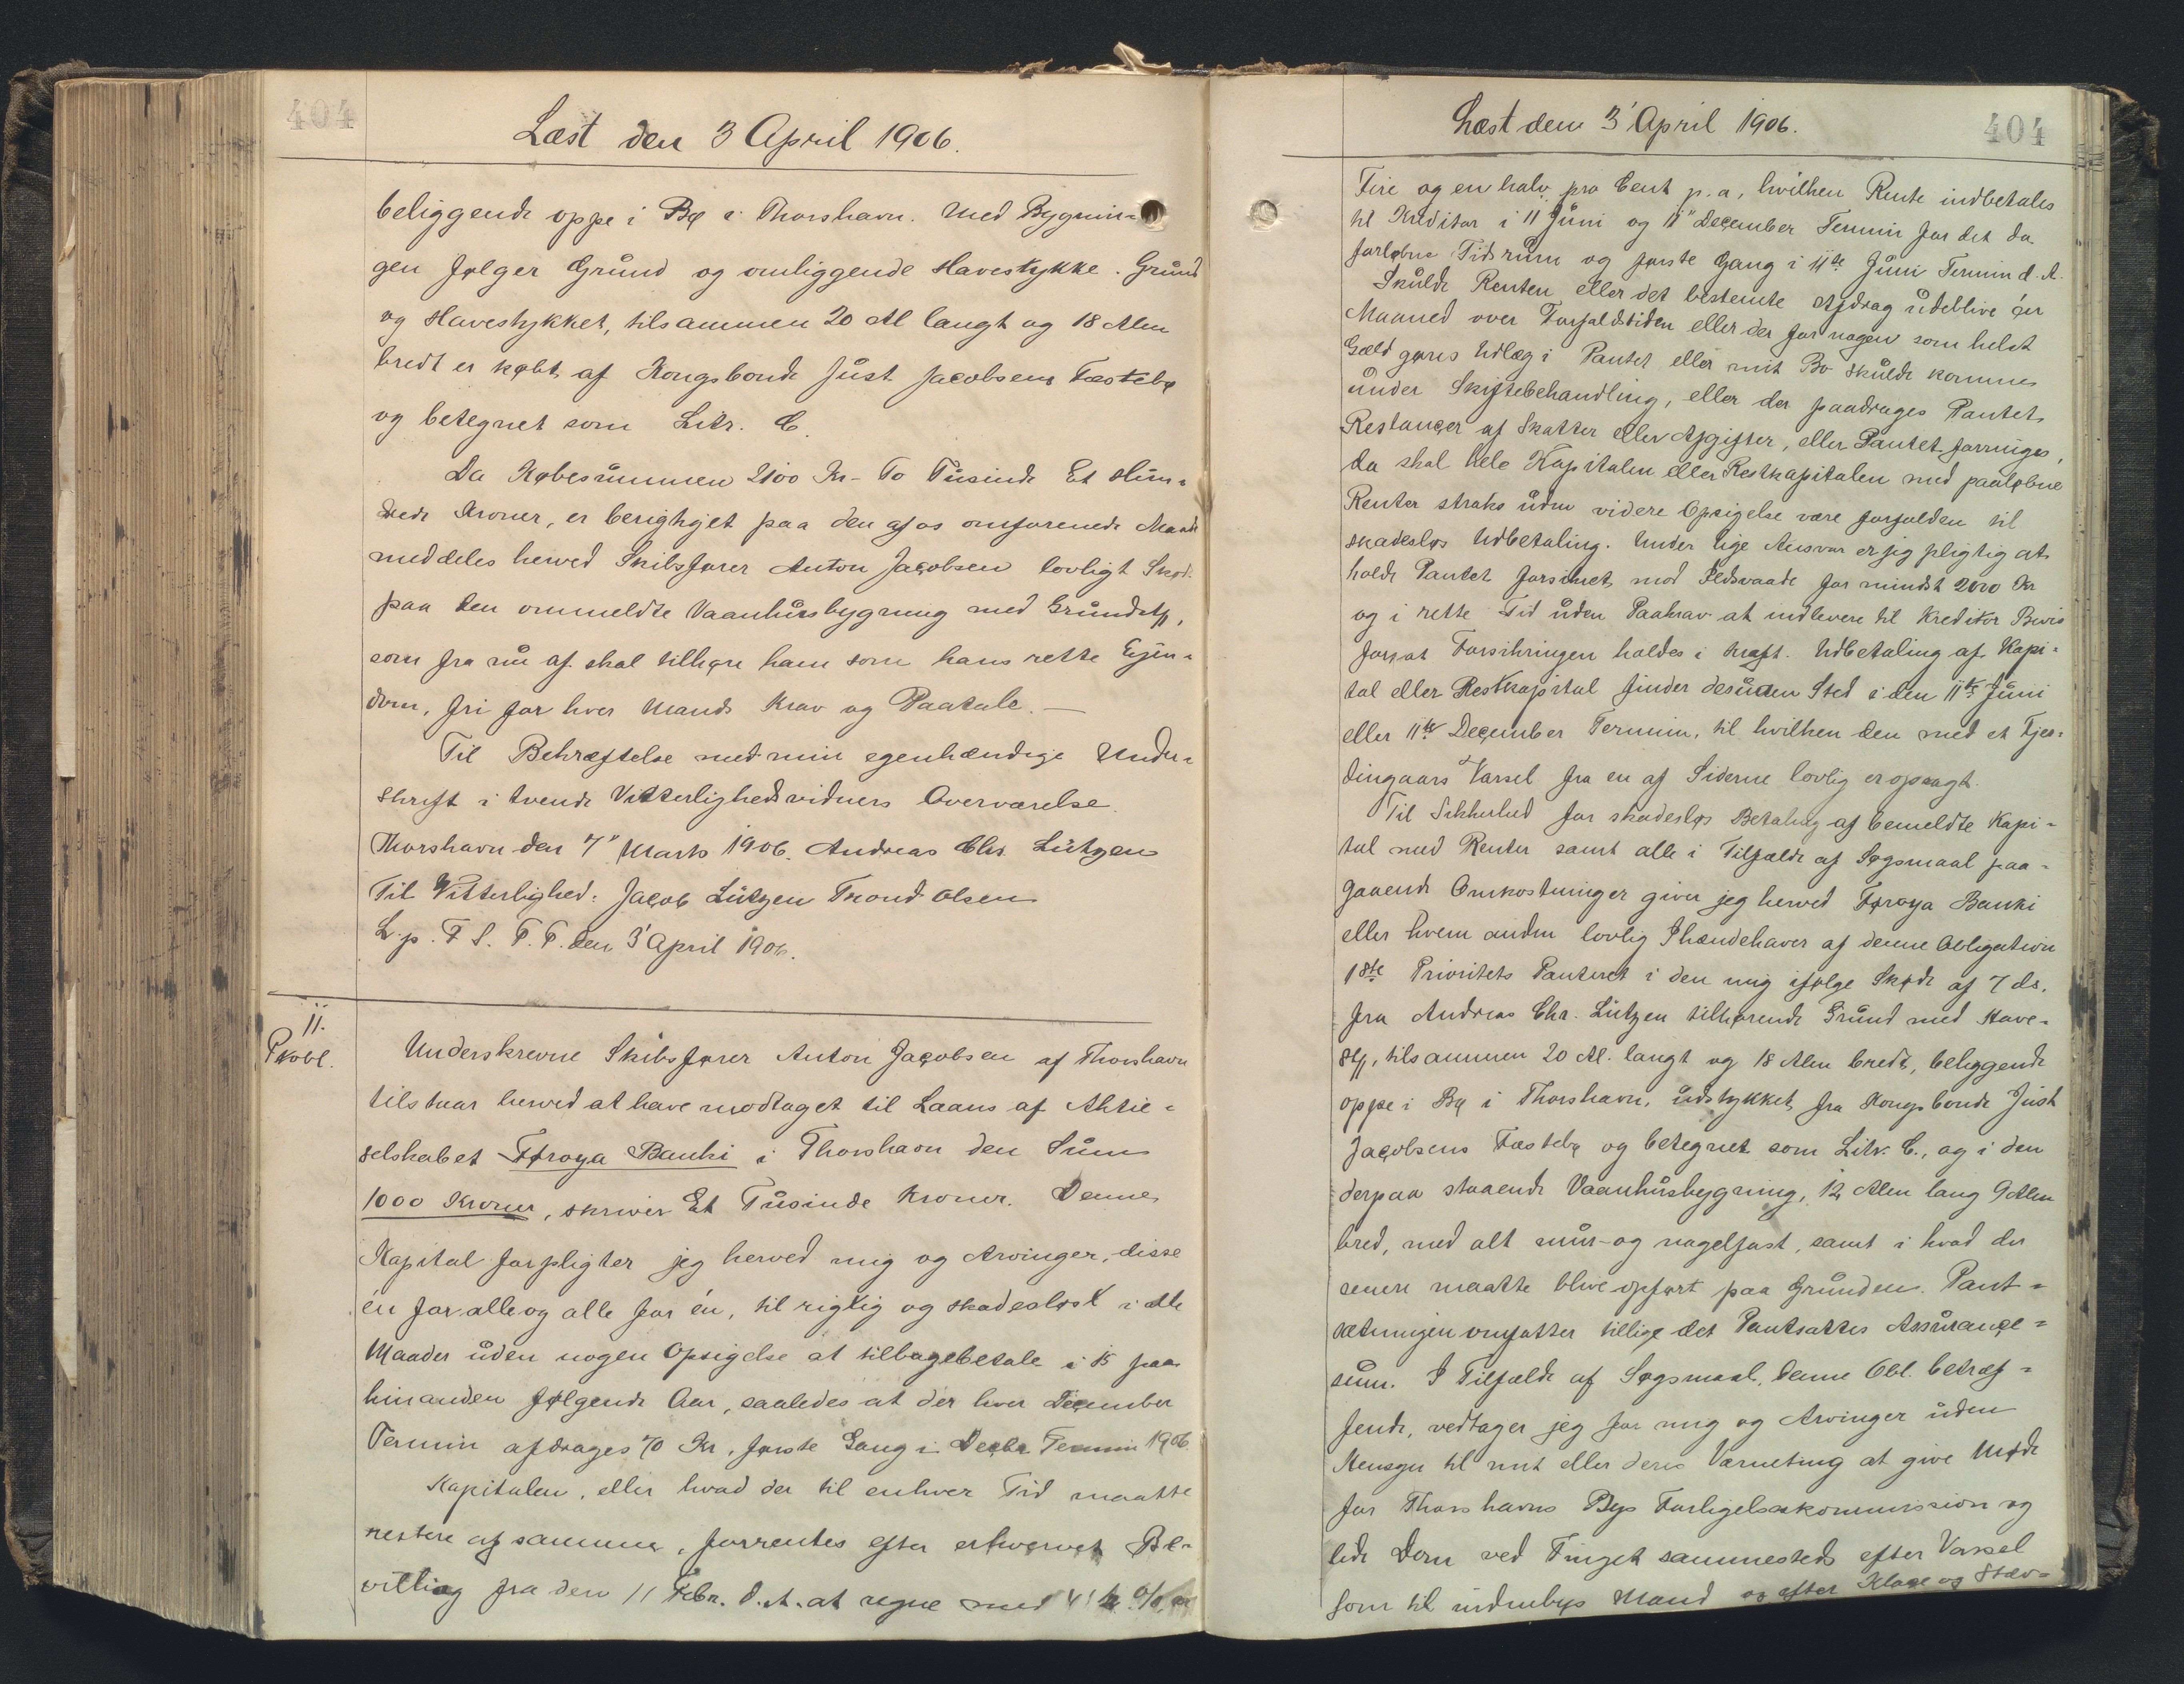 404
Læst den 3 April 1906.
beliggende oppe i Bø i Thorshavn. Med Bygnin-
gen følger Grund og omliggende Havestykke. Grund
og Havestykket, tilsammen 20 Al langt og 18 Alen
bredt er købt af Kongsbonde Just Jacobsens Fæstebø
og betegnet som Litr. C.
Da Købesummen 2100 Kr - To Tusinde Et Hun-
drede Kroner, er berigtiget paa den af os omforenede Maade
meddeles herved Skibsfører Anton Jacobsen lovligt Skød
paa den ommeldte Vaanhusbygning med Grundst.,
som fra nu af skal tilhøre ham som hans rette Ejen-
dom, fri for hver Mands Krav og Paatale. —
Til Bekræftelse med min egenhændige Under-
skrift i tvende Vitterlighedsvidners Overværelse.
Thorshavn den 7" Marts 1906. Andreas Chr. Lützen
Til Vitterlighed: Jacob Lützen Trond Olsen
L. p. F S. T. P. den 3' April 1906.
11.
Pkobl.
Underskrevne Skibsfører Anton Jacobsen af Thorshavn
tilstaar herved at have modtaget til Laans af Aktie-
selskabet Føroya Banki i Thorshavn den Sum
1000 Kroner, skriver Et Tusinde Kroner. Denne
Kapital forpligter jeg herved mig og Arvinger, disse
én for alle og alle for én, til rigtig og skadesløst i alle
Maader uden nogen Opsigelse at tilbagebetale i 15 paa
hinanden følgende Aar, saaledes at der hver December
Termin afdrages 70 Kr, første Gang i Decbr Termin 1906.
Kapitalen, eller hvad der til enhver Tid maatte
restere af samme, forrentes efter erhvervet Be-
villing fra den 11 Febr. d. A. at regne med 4 1/2 %
Læst den 3' April 1906.
404
Fire og en halv pro Cent p. a, hvilken Rente indbetales
til Kreditor i 11 Juni og 11" December Termin for det da
forløbne Tidsrum og første Gang i 11te Juni Termin d. A.
Skulde Renten eller det bestemte Afdrag udeblive én
Maaned over Forfaldstiden eller der for nogen som helst
Gæld gøres Udlæg i Pantet eller mit Bo skulde komme
under Skiftebehandling, eller der paadrages Pantet
Restancer af Skatter eller Afgifter, eller Pantet forringes,
da skal hele Kapitalen eller Restkapitalen med paaløbne
Renter straks uden videre Opsigelse være forfalden til
skadesløs Udbetaling. Under lige Ansvar er jeg pligtig at
holde Pantet forsikret mod Ildsvaade for mindst 2000 Kr
og i rette Tid uden Paakrav at indlevere til Kreditor Bevis
for, at Forsikringen holdes i Kraft. Udbetaling af Kapi-
tal eller Restkapital finder desuden Sted i den 11te Juni
eller 11te December Termin, til hvilken den med et Fjer-
dingaars Varsel fra en af Siderne lovlig er opsagt.
Til Sikkerhed for skadesløs Betaling af bemeldte Kapi-
tal med Renter samt alle i Tilfælde af Søgsmaal paa-
gaaende Omkostninger giver jeg herved Føroya Banki
eller hvem anden lovlig Ihændehaver af denne Obligation
1ste Prioritets Panteret i den mig ifølge Skøde af 7 ds.
fra Andreas Chr. Lützen tilhørende Grund med Have-
st., tilsammen 20 Al. langt og 18 Alen bredt, beliggende
oppe i Bø i Thorshavn, udstykket fra Kongsbonde Just
Jacobsens Fæstebø og betegnet som Litr. C., og i den
derpaa staaende Vaanhusbygning, 12 Alen lang 9 Alen
bred, med alt mur- og nagelfast, samt i hvad der
senere maatte blive opført paa Grunden. Pant-
sætningen omfatter tillige det Pantsattes Assurance-
sum. I Tilfælde af Søgsmaal, denne Obl. betræf-
fende, vedtager jeg for mig og Arvinger uden
Hensyn til mit eller deres Værneting at give Møde
for Thorshavns Bys Forligelseskommission og
lide Dom ved Tinget sammesteds efter Varsel
som til indenbys Mand og efter Klage og Stæv-